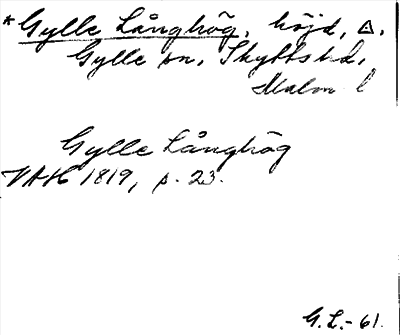 *Gylle Långhög, höjd, △.
Gylle sn, Skytts hd,
Malm l
Gylle Långhög
VAH 1819, p. 23.
G.L.-61.